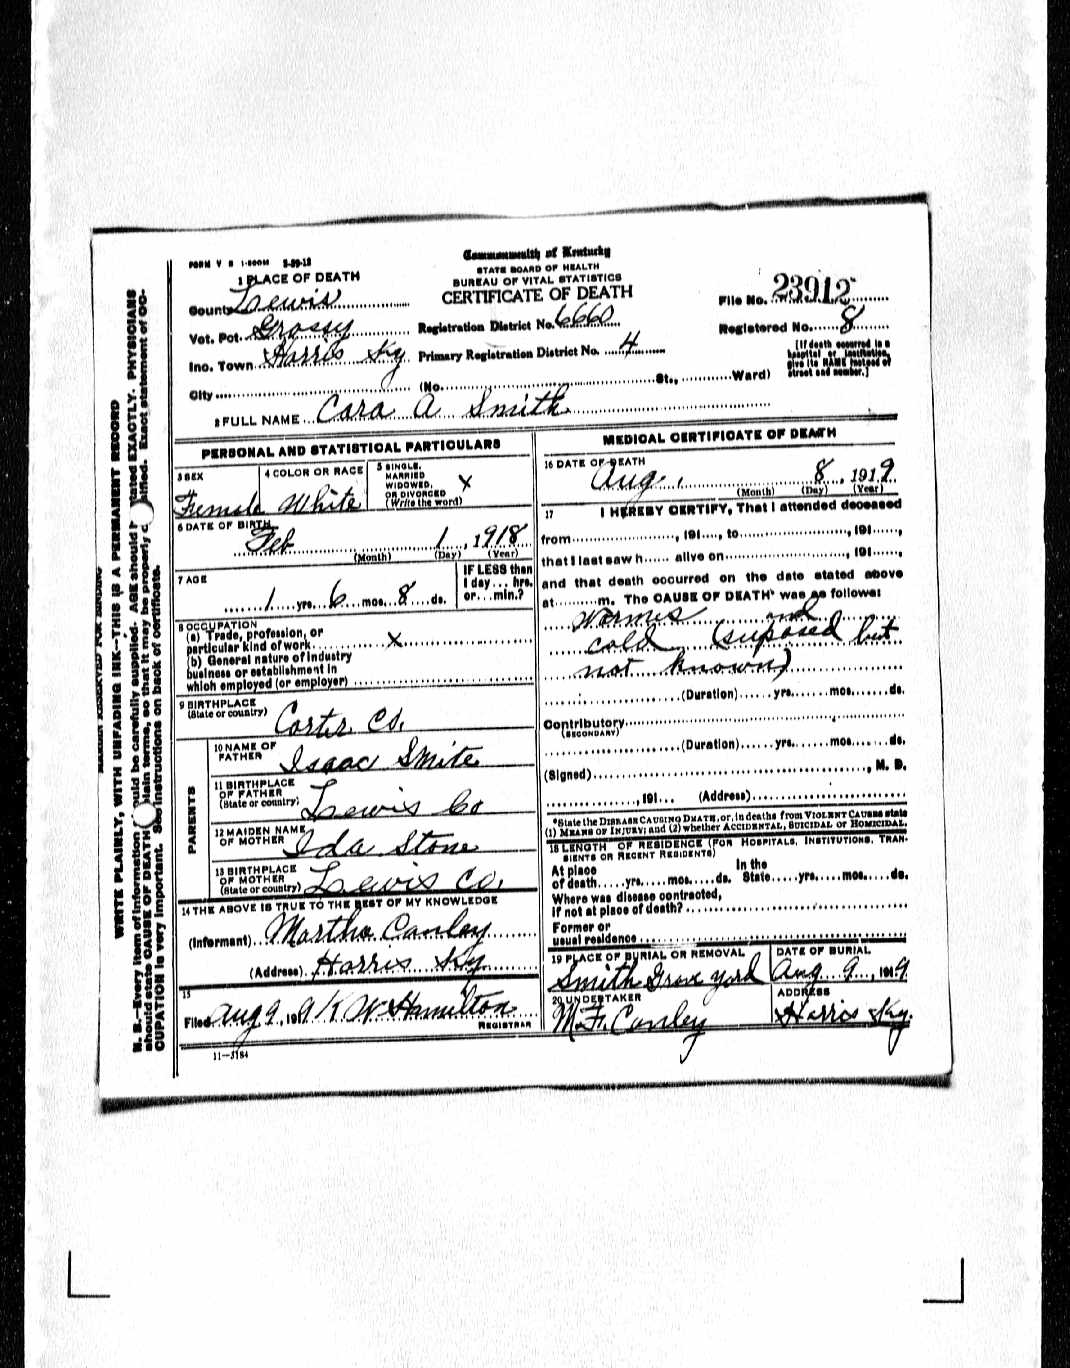 FORM V S 1-500M 5-29-18
Commonwealth of Kentucky
STATE BOARD OF HEALTH
BUREAU OF VITAL STATISTICS
CERTIFICATE OF DEATH
1 PLACE OF DEATH
County Lewis
Vot. Pct. Grassy
Inc. Town Harris Ky
City (No. St., Ward)
Registration District No. 6660
Primary Registration District No. 4
File No. 23912
Registered No. 8
[If death occurred in a
hospital or institution,
give its NAME instead of
street and number.]
2 FULL NAME Cara A Smith
PERSONAL AND STATISTICAL PARTICULARS
3 SEX
Female
4 COLOR OR RACE
White
5 SINGLE,
MARRIED
WIDOWED,
OR DIVORCED
(Write the word)
X
6 DATE OF BIRTH
Feb 1, 1918
(Month) (Day) (Year)
7 AGE
1 yrs. 6 mos. 8 ds.
IF LESS than
1 day... hrs.
or... min.?
8 OCCUPATION
(a) Trade, profession, or
particular kind of work X
(b) General nature of industry
business or establishment in
which employed (or employer)
9 BIRTHPLACE
(State or country) Carter Co.
PARENTS
10 NAME OF
FATHER Isaac Smite
11 BIRTHPLACE
OF FATHER
(State or country) Lewis Co
12 MAIDEN NAME
OF MOTHER Ida Stone
13 BIRTHPLACE
OF MOTHER
(State or country) Lewis Co.
14 THE ABOVE IS TRUE TO THE BEST OF MY KNOWLEDGE
(Informant) Martha Canley
(Address) Harris Ky.
15
Filed Aug 9, 1919 K W Hamilton
REGISTRAR
11-3184
MEDICAL CERTIFICATE OF DEATH
16 DATE OF DEATH
Aug. 8, 1919
(Month) (Day) (Year)
17 I HEREBY CERTIFY, That I attended deceased
from , 191 , to , 191 ,
that I last saw h alive on , 191 ,
and that death occurred on the date stated above
at m. The CAUSE OF DEATH* was as follows:
Wormes and
cold (suposed but
not known)
(Duration) yrs. mos. ds.
Contributory
(SECONDARY)
(Duration) yrs. mos. ds.
(Signed) , M. D.
, 191 (Address)
*State the DISEASE CAUSING DEATH, or, in deaths from VIOLENT CAUSES state
(1) MEANS OF INJURY; and (2) whether ACCIDENTAL, SUICIDAL or HOMICIDAL.
18 LENGTH OF RESIDENCE (FOR HOSPITALS, INSTITUTIONS, TRAN-
SIENTS OR RECENT RESIDENTS)
At place
of death yrs. mos. ds.
In the
State yrs. mos. ds.
Where was disease contracted,
if not at place of death?
Former or
usual residence
19 PLACE OF BURIAL OR REMOVAL
Smith Grave yard
DATE OF BURIAL
Aug 9, 1919
20 UNDERTAKER
M. F. Canley
ADDRESS
Harris Ky.
MARGIN RESERVED FOR BINDING
WRITE PLAINLY, WITH UNFADING INK--THIS IS A PERMANENT RECORD
N. B.--Every item of information should be carefully supplied. AGE should be stated EXACTLY. PHYSICIANS
should state CAUSE OF DEATH in plain terms, so that it may be properly classified. Exact statement of OC-
CUPATION is very important. See instructions on back of certificate.